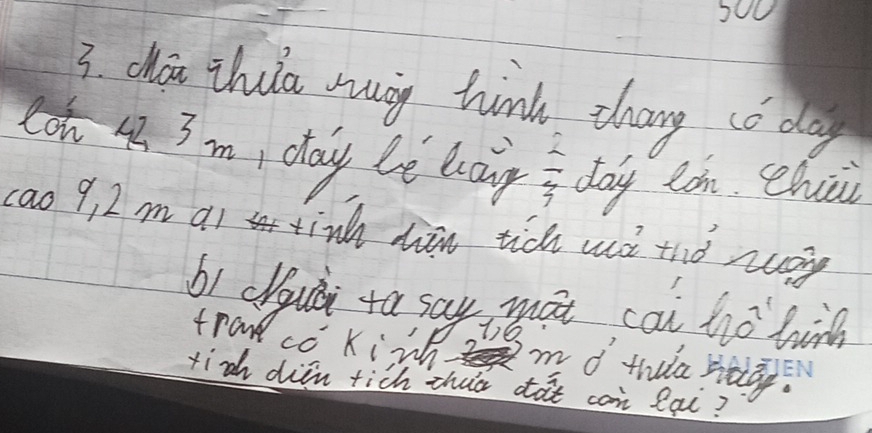 500
3. Một thửa ruộng hình thang có đáy
lớn 42,3 m, đáy bé bằng 2/3 đáy lớn. Chiều
cao 9,2 m a) tính diện tích của thử ruộng
b) Người ta say một cái hồ hình
tran có kính 1,6 m ở thửa
tính diện tích thửa đất còn lại?